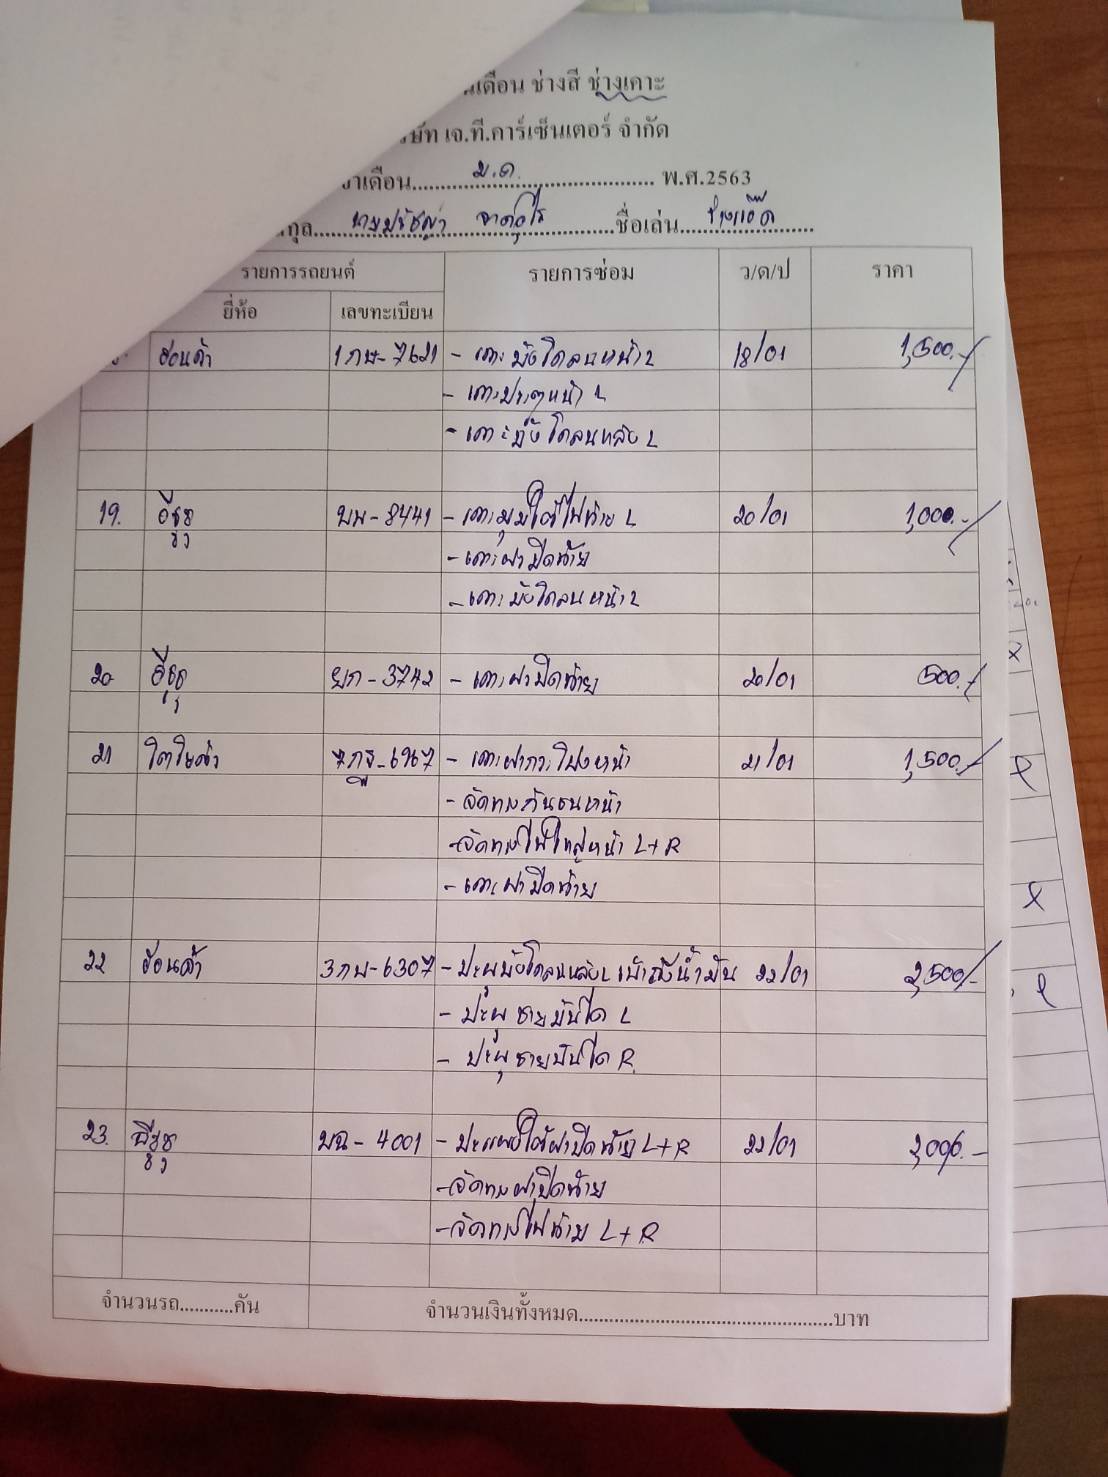 เดือน ช่างสี ช่างเคาะ
ษัท เจ.ที.คาร์เซ็นเตอร์ จำกัด
เดือน ม.ค. พ.ศ.2563
กุล นายปรัชญา ชื่อเล่น
รายการรถยนต์ รายการซ่อม ว/ด/ป ราคา
ยี่ห้อ เลขทะเบียน
ฮอนด้า 1กษ-7621 - เคาะบังโคลนหน้า L 18/01 1,500.-
- เคาะประตูหน้า L
- เคาะบังโคลนหลัง L
19. อีซูซุ บพ-8441 - เคาะมุมใต้ไฟท้าย L 20/01 1,000.-
- เคาะฝาปิดท้าย
- เคาะบังโคลนหน้า L
20 อีซูซุ ยก-3742 - เคาะฝาปิดท้าย 20/01 500.-
21 โตโยต้า 7กฐ-6967 - เคาะฝากระโปรงหน้า 21/01 1,500.-
- จัดทรงกันชนหน้า
- จัดทรงไฟใหญ่หน้า L+R
- เคาะฝาปิดท้าย
22 ฮอนด้า 3กพ-6307 - ปะผุบังโคลนหลัง L เบ้าถังน้ำมัน 22/01 2,500/-
- ปะผุชายบันได L
- ปะผุชายบันได R
23. อีซูซุ บฉ-4001 - ปะแผงใต้ฝาปิดท้าย L+R 22/01 2,000.-
- จัดทรงฝาปิดท้าย
- จัดทรงไฟท้าย L+R
จำนวนรถ...........คัน จำนวนเงินทั้งหมด..................................................บาท